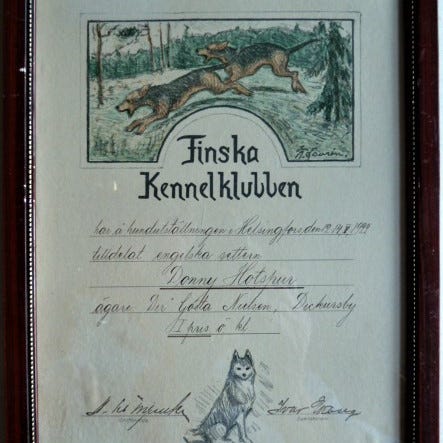 Finska
Kennelklubben
har å hundutställningen i Helsingfors den
tilldelat engelska settern
Donny Hotspur
ägare Dir Gösta Nielsen, Dickursby
I pris ö kl
Ivar